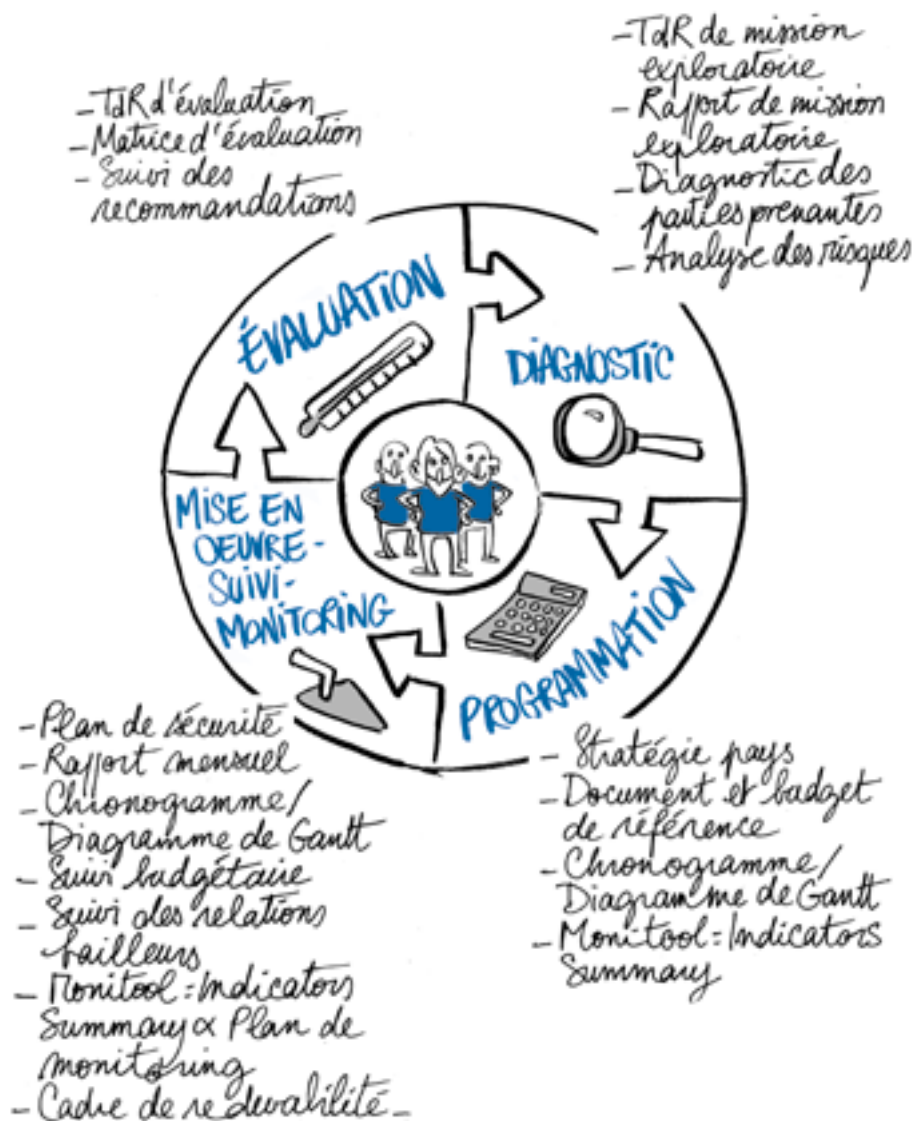 - TdR d'évaluation
- Matrice d'évaluation
- Suivi des
recommandations
- TdR de mission
exploratoire
- Rapport de mission
exploratoire
- Diagnostic des
parties prenantes
- Analyse des risques
ÉVALUATION
DIAGNOSTIC
MISE EN
OEUVRE -
SUIVI -
MONITORING
PROGRAMMATION
- Plan de sécurité
- Rapport mensuel
- Chronogramme/
Diagramme de Gantt
- Suivi budgétaire
- Suivi des relations
bailleurs
- Monitool = Indicators
Summary & Plan de
monitoring
- Cadre de redevabilité -
- Stratégie pays
- Document et budget
de référence
- Chronogramme/
Diagramme de Gantt
- Monitool = Indicators
Summary